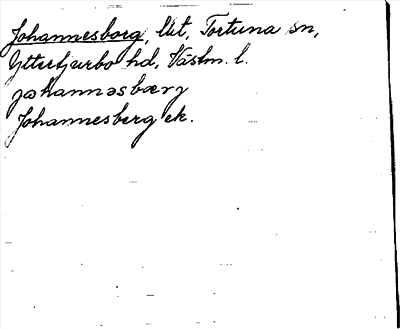 Johannesborg, Utt, Tortuna sn,
Yttertjurbo hd, Västm. l.
johannəsbærj
Johannesberg ek.